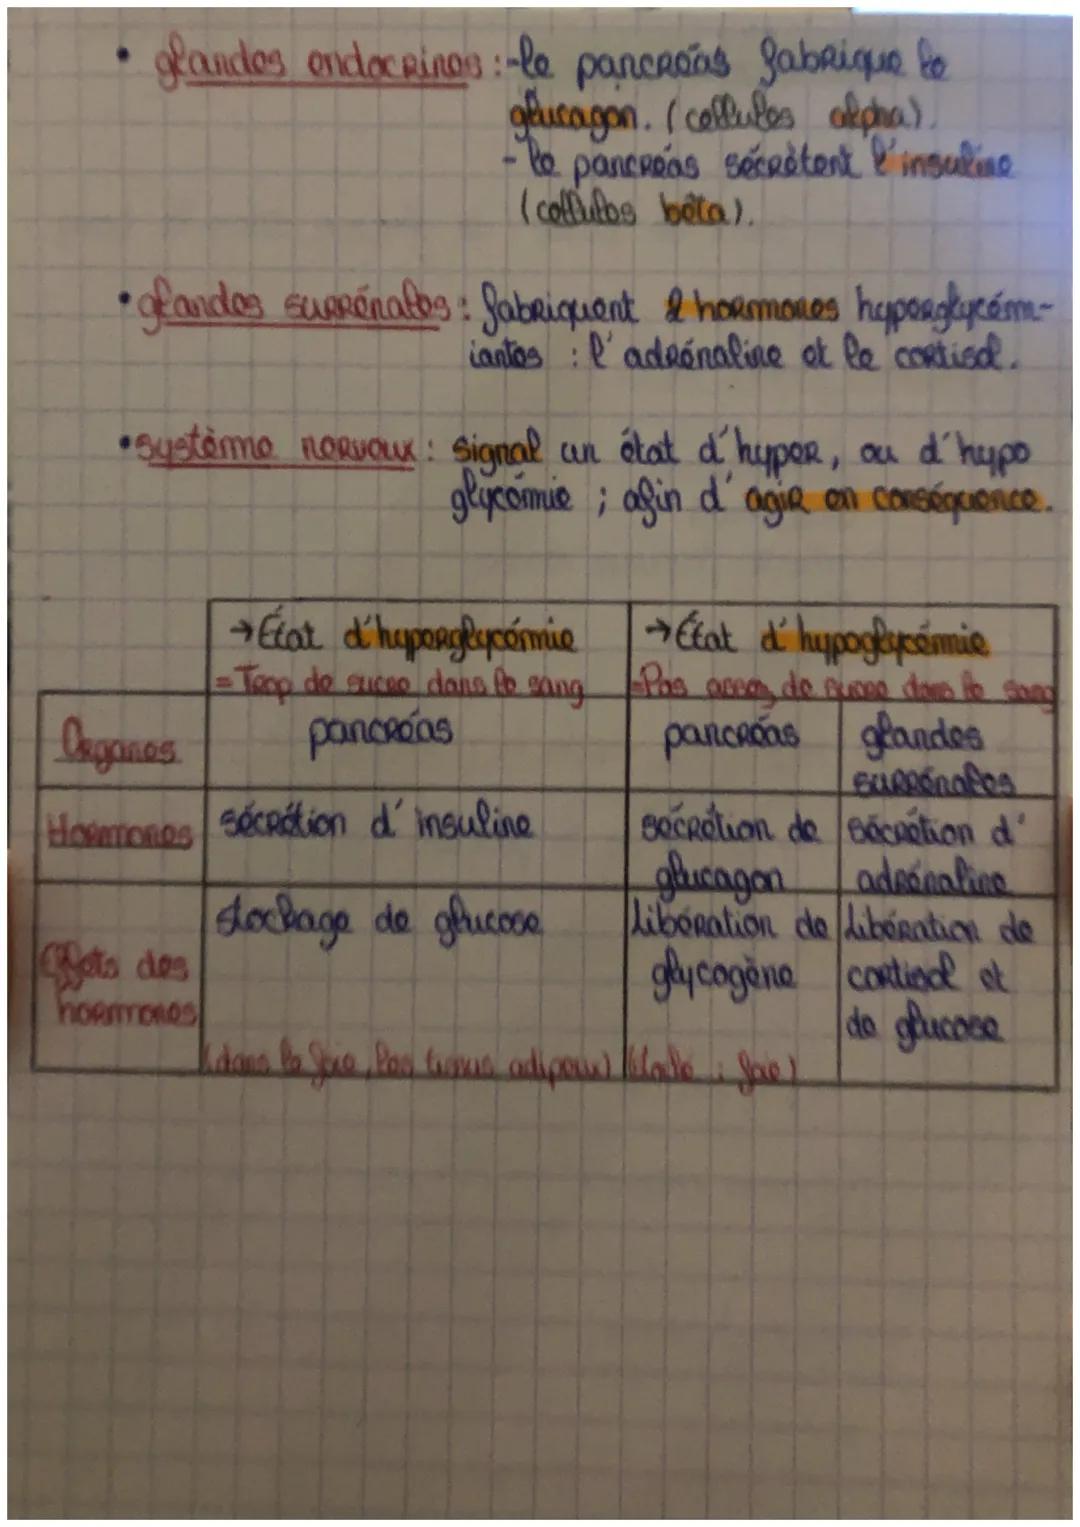 • glandes endocrines : - le pancréas fabrique le
glucagon. (cellules alpha).
- le pancréas sécrètent l'insuline
(cellules bêta).
• glandes surrénales : fabriquent 2 hormones hyperglycém-
iantes : l'adrénaline et le cortisol.
• système nerveux : signal un état d'hyper, ou d'hypo
glycémie ; afin d'agir en conséquence.
→ État d'hyperglycémie
= Trop de sucre dans le sang
→ État d'hypoglycémie
= Pas assez de sucre dans le sang
Organes
pancréas
pancréas
glandes
surrénales
Hormones
sécrétion d'insuline
sécrétion de
glucagon
sécrétion d'
adrénaline
Effets des
hormones
stockage de glucose
(dans le foie, les tissus adipeux)
libération de
glycogène
foie)
libération de
cortisol et
de glucose